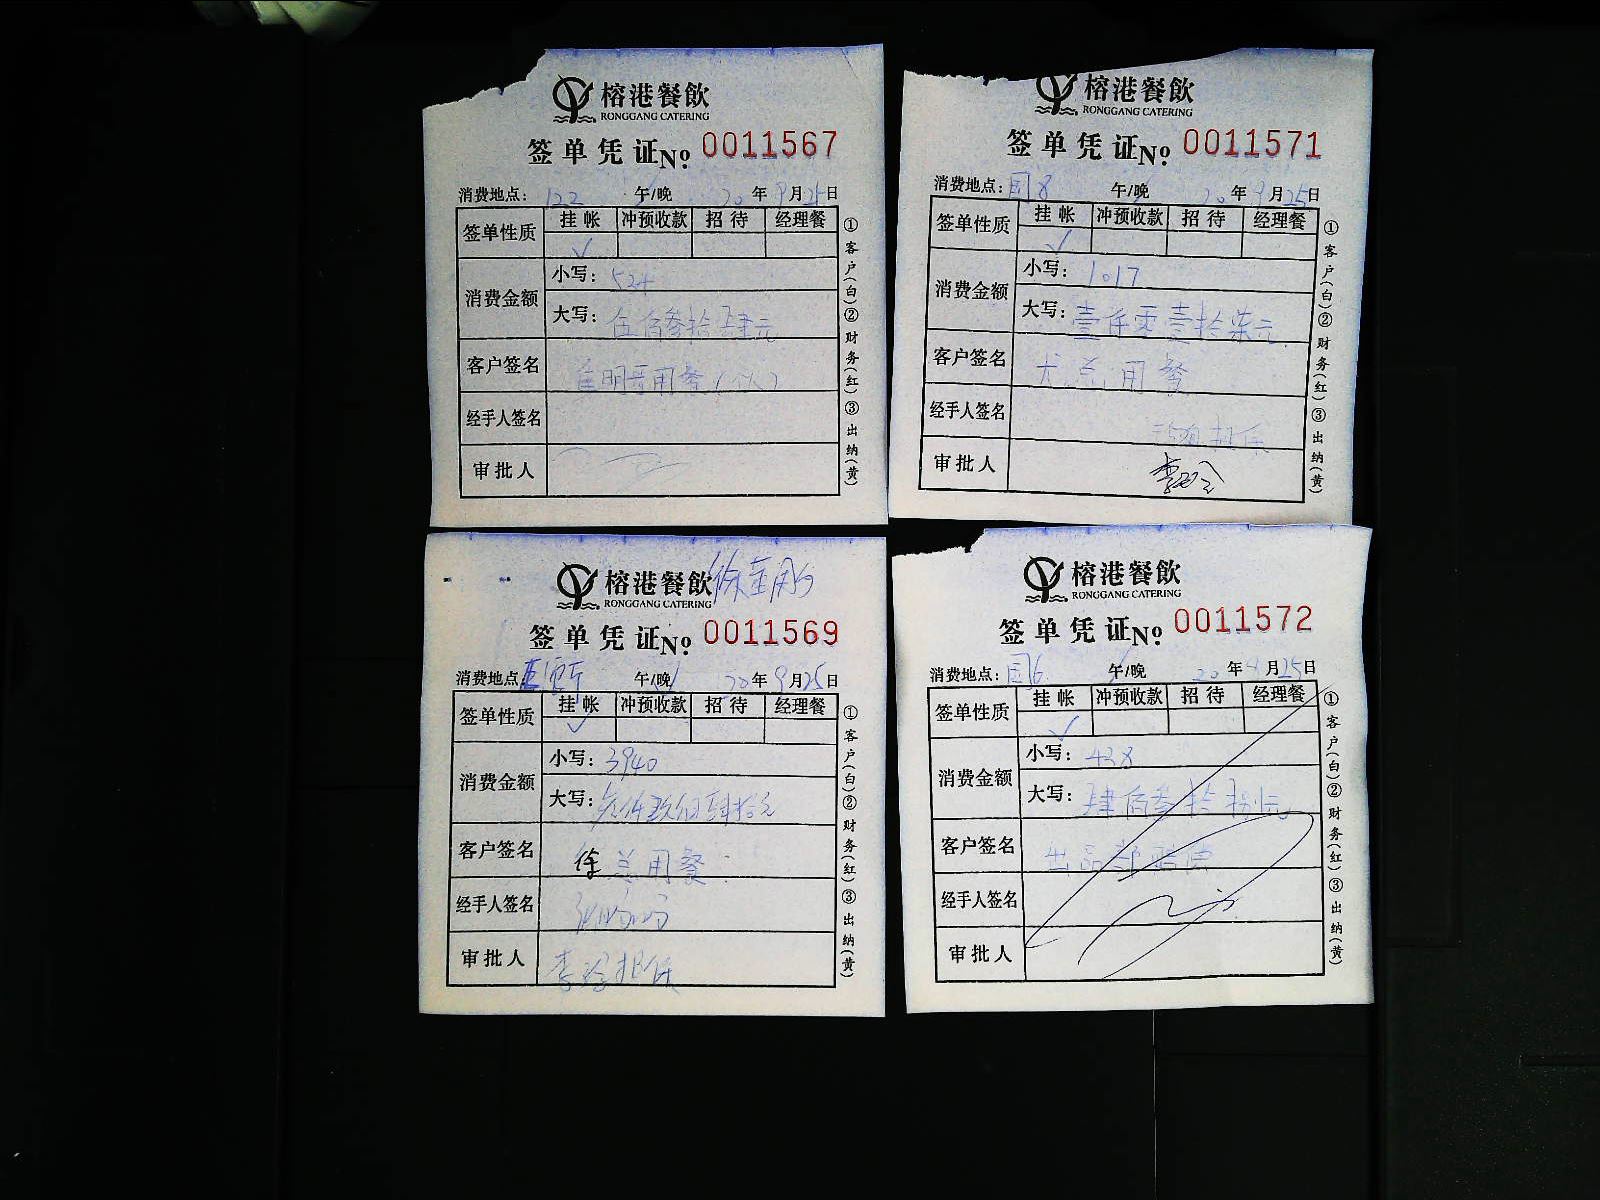 榕港餐飲
RONGGANG CATERING
签单凭证 No. 0011567
消费地点: 122 午/晚 20年9月25日
签单性质 挂帐 冲预收款 招待 经理餐
✓
消费金额 小写:
大写: 伍佰叁拾肆元
客户签名 明哥用餐
经手人签名
审批人
①客户(白)②财务(红)③出纳(黄)
榕港餐飲
RONGGANG CATERING
签单凭证 No. 0011571
消费地点: 国8 午/晚 20年9月25日
签单性质 挂帐 冲预收款 招待 经理餐
✓
消费金额 小写: 1017
大写: 壹仟零壹拾柒元
客户签名 尤总用餐
经手人签名 担保
审批人
①客户(白)②财务(红)③出纳(黄)
榕港餐飲
RONGGANG CATERING
签单凭证 No. 0011569
消费地点 午/晚 20年9月25日
签单性质 挂帐 冲预收款 招待 经理餐
✓
消费金额 小写: 3940
大写: 叁仟玖佰肆拾元
客户签名 徐总用餐
经手人签名
审批人 担保
①客户(白)②财务(红)③出纳(黄)
榕港餐飲
RONGGANG CATERING
签单凭证 No. 0011572
消费地点: 国6 午/晚 20年9月25日
签单性质 挂帐 冲预收款 招待 经理餐
✓
消费金额 小写: 438
大写: 肆佰叁拾捌元
客户签名 出品部
经手人签名
审批人
①客户(白)②财务(红)③出纳(黄)